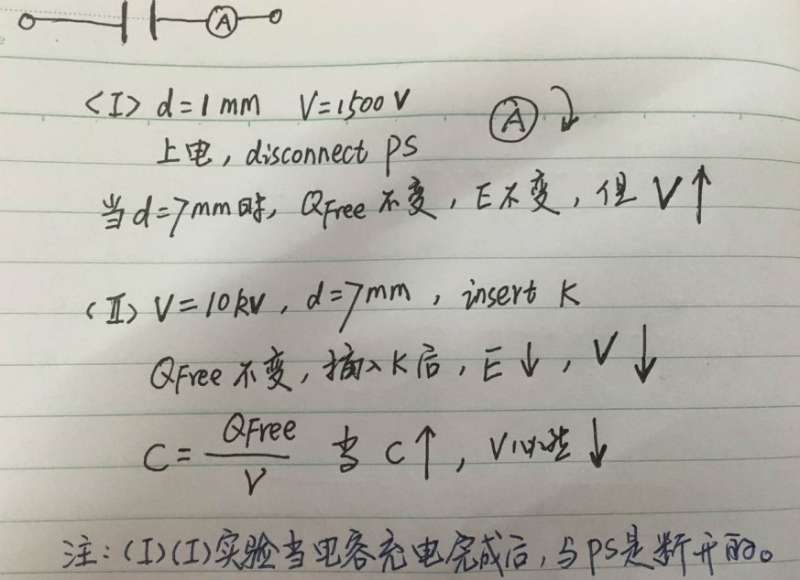 A
<I> d=1mm V=1500V
A
上电, disconnect PS
当d=7mm时, QFree 不变, E不变, 但 V↑
(II) V=10kV, d=7mm, insert K
QFree 不变, 插入K后, E↓, V↓
C = QFree / V 当 C↑, V必然↓
注: (I)(I)实验当电容充电完成后, 与PS是断开的。